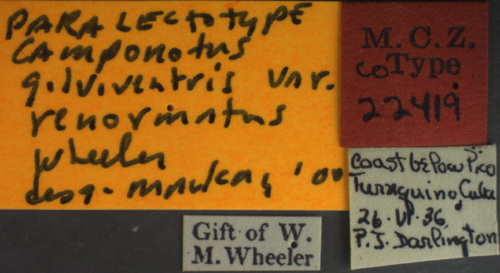 PARALECTOTYPE
Camponotus
gilviventris var.
renormatus
Wheeler
desg. Mackay, '00
M. C. Z.
CoType
22419
Coast below Pico
Turquino Cuba
26.VI.36
P.J. Darlington
Gift of W.
M. Wheeler